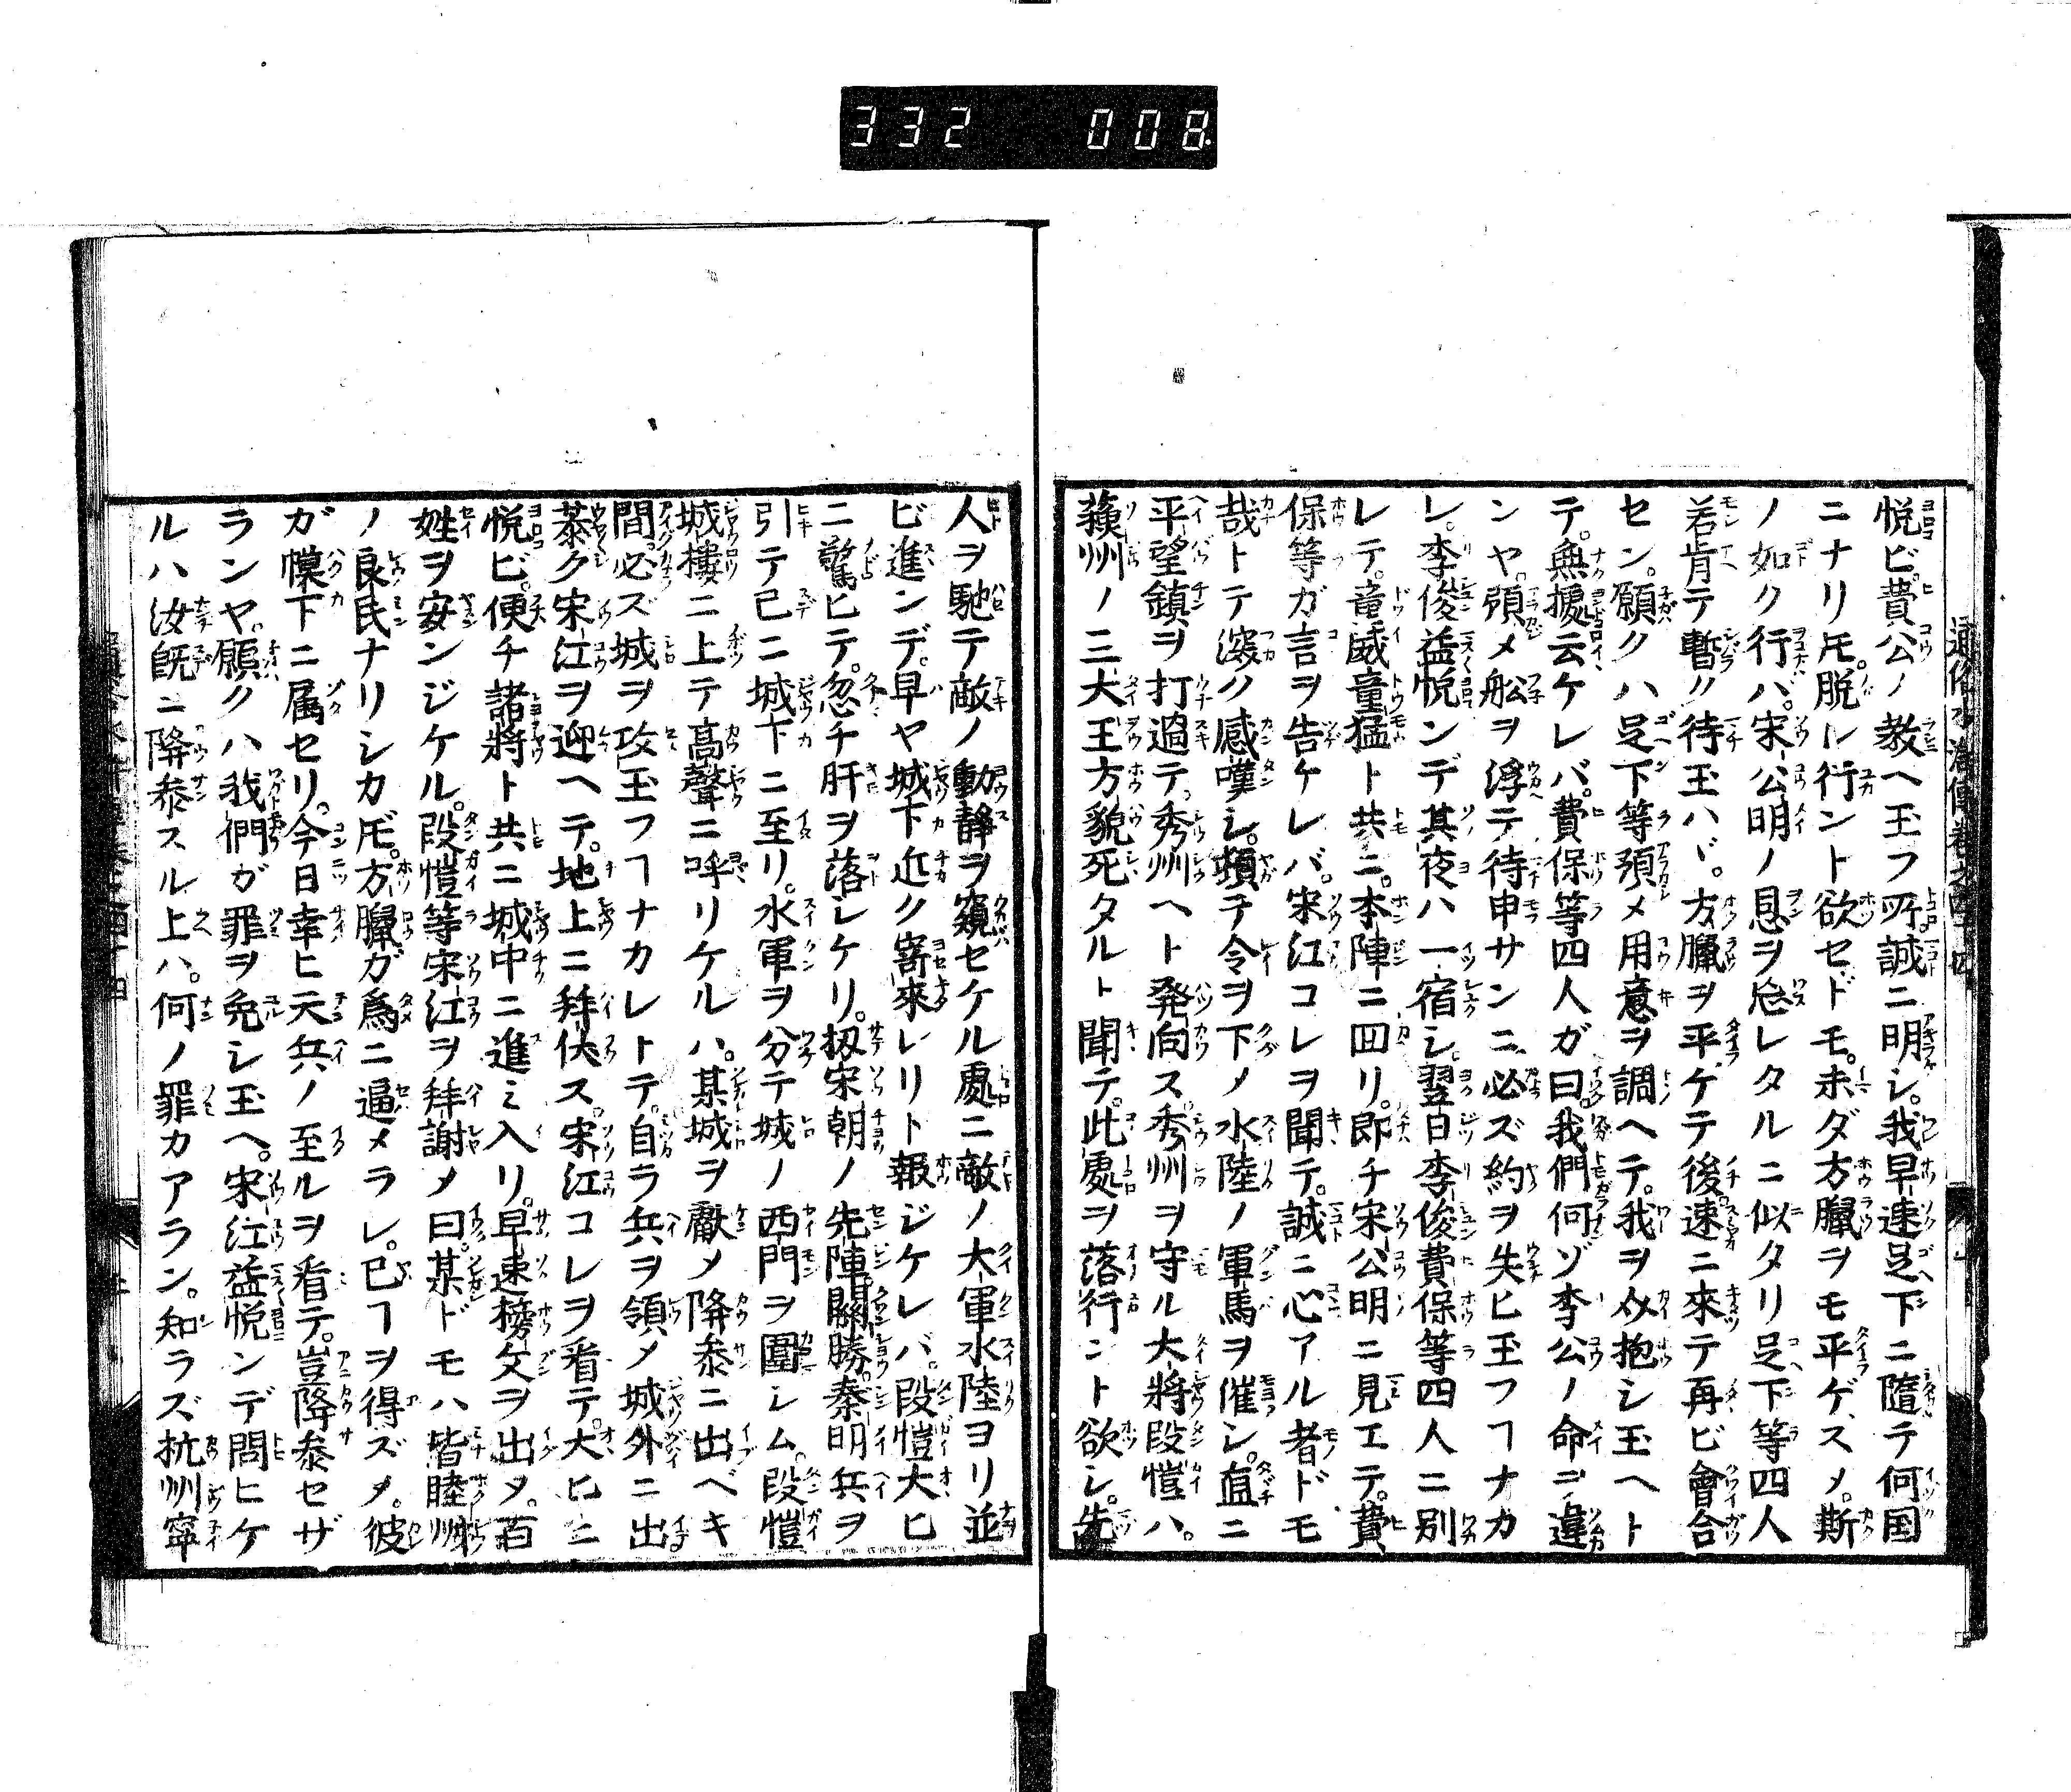 332 008
悦ビ。費公ノ教ヘ玉フ所誠ニ明シ。我早速足下ニ隨テ何国
ニナリ𪜈。脱レ行ント欲セドモ。未ダ方臘ヲモ平ゲズメ。斯
ノ如ク行バ。宋公明ノ恩ヲ忘レタルニ似タリ足下等四人
若肯テ暫ク待玉ハヾ。方臘ヲ平ケテ後速ニ來テ再ビ會合
セン。願クハ足下等預メ用意ヲ調ヘテ。我ヲ介抱シ玉ヘト
テ。無據云ケレバ。費保等四人ガ曰。我們何ゾ李公ノ命ニ違
ンヤ。預メ舩ヲ浮テ待申サンニ必ズ約ヲ失ヒ玉フヿナカ
レ。李俊益悦ンデ其夜ハ一宿シ。翌日李俊費保等四人ニ別
レテ。童威童猛ト共ニ。本陣ニ回リ。即チ宋公明ニ見エテ。費
保等ガ言ヲ告ケレバ。宋江コレヲ聞テ。誠ニ心アル者ドモ
哉トテ深ク感嘆シ。頓テ令ヲ下メ水陸ノ軍馬ヲ催シ。直ニ
平望鎮ヲ打過テ。秀州ヘト発向ス。秀州ヲ守ル大將段愷ハ。
蘓州ノ三大王方貌死タルト聞テ。此處ヲ落行ント欲シ。先
人ヲ馳テ敵ノ動靜ヲ窺セケル處ニ敵ノ大軍水陸ヨリ並
ビ進ンデ。早ヤ城下近ク寄來レリト報ジケレバ。段愷大ヒ
ニ驚ヒテ。忽チ肝ヲ落シケリ。扨宋朝ノ先陣關勝。秦明兵ヲ
引テ已ニ城下ニ至リ。水軍ヲ分テ城ノ西門ヲ圍シム。段愷
城樓ニ上テ高聲ニ呼リケルハ。某城ヲ獻メ降參ニ出ベキ
間。必ズ城ヲ攻玉フヿナカレトテ。自ラ兵ヲ領メ城外ニ出
恭ク宋江ヲ迎ヘテ。地上ニ拜伏ス。宋江コレヲ看テ。大ヒニ
悦ビ。便チ諸將ト共ニ城中ニ進ミ入リ。早速榜文ヲ出メ。百
姓ヲ安ンジケル。段愷等宋江ヲ拜謝メ曰。某ドモハ皆睦州
ノ良民ナリシカ𪜈。方臘ガ爲ニ逼メラレ。已ヿヲ得ズメ。彼
ガ幕下ニ属セリ。今日幸ヒ天兵ノ至ルヲ看テ。豈降参セザ
ランヤ。願クハ我們ガ罪ヲ免シ玉ヘ。宋江益悦ンデ問ヒケ
ルハ汝既ニ降参スル上ハ。何ノ罪カアラン。知ラズ杭州寧